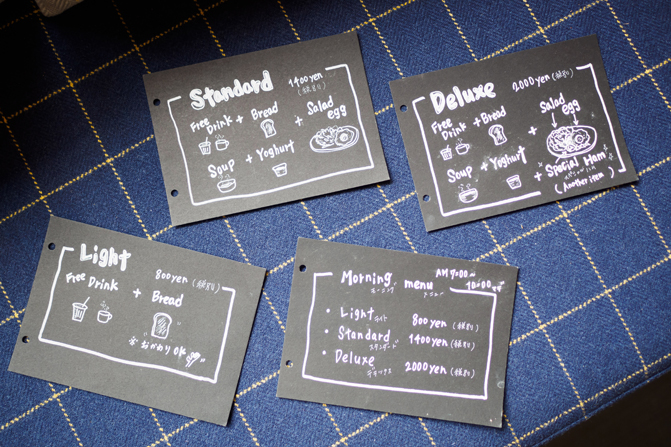 Standard
1400yen (税別)
Free Drink + Bread + Salad egg
Soup + Yoghurt
Deluxe
2000yen (税別)
Free Drink + Bread
+ Salad egg
Soup + Yoghurt + Special Ham
(Another item)
Light
800yen (税別)
Free Drink + Bread
※おかわりOK
Morning menu AM 7:00~
モーニング メニュー 10:00まで
・Light 800yen (税別)
ライト
・Standard 1400yen (税別)
スタンダード
・Deluxe 2000yen (税別)
デラックス